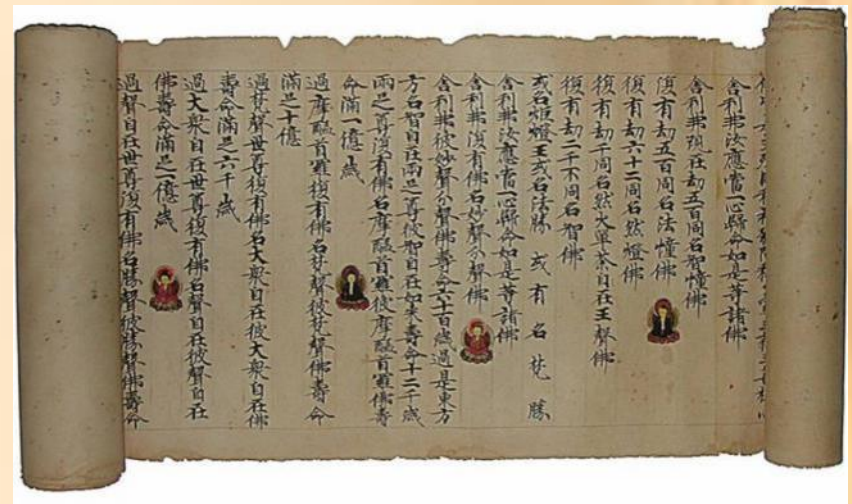 舍利弗汝應當一心歸命如是等諸佛
舍利弗現在劫五百同名智憧佛
復有劫五百同名法憧佛
復有劫六十二同名然燈佛
復有劫千同名然大單荼自在王聲佛
復有劫二千不同名智佛
或名炬燈王或名法勝或有名梵勝
舍利弗汝應當一心歸命如是等諸佛
舍利弗復有佛名妙聲分聲佛
舍利弗彼妙聲分聲佛壽命六十百歲過是東方
方名智自在兩足尊彼智自在如來壽命十二千歲
兩足尊復有佛名摩醯首羅彼摩醯首羅佛壽
命滿一億歲
過摩醯首羅復有佛名梵聲彼梵聲佛壽命
滿足十億
過梵聲世尊復有佛名大衆自在彼大衆自在佛
壽命滿足六千歲
過大衆自在世尊復有佛名聲自在彼聲自在
佛壽命滿足一億歲
過聲自在世尊復有佛名勝聲彼勝聲佛壽命